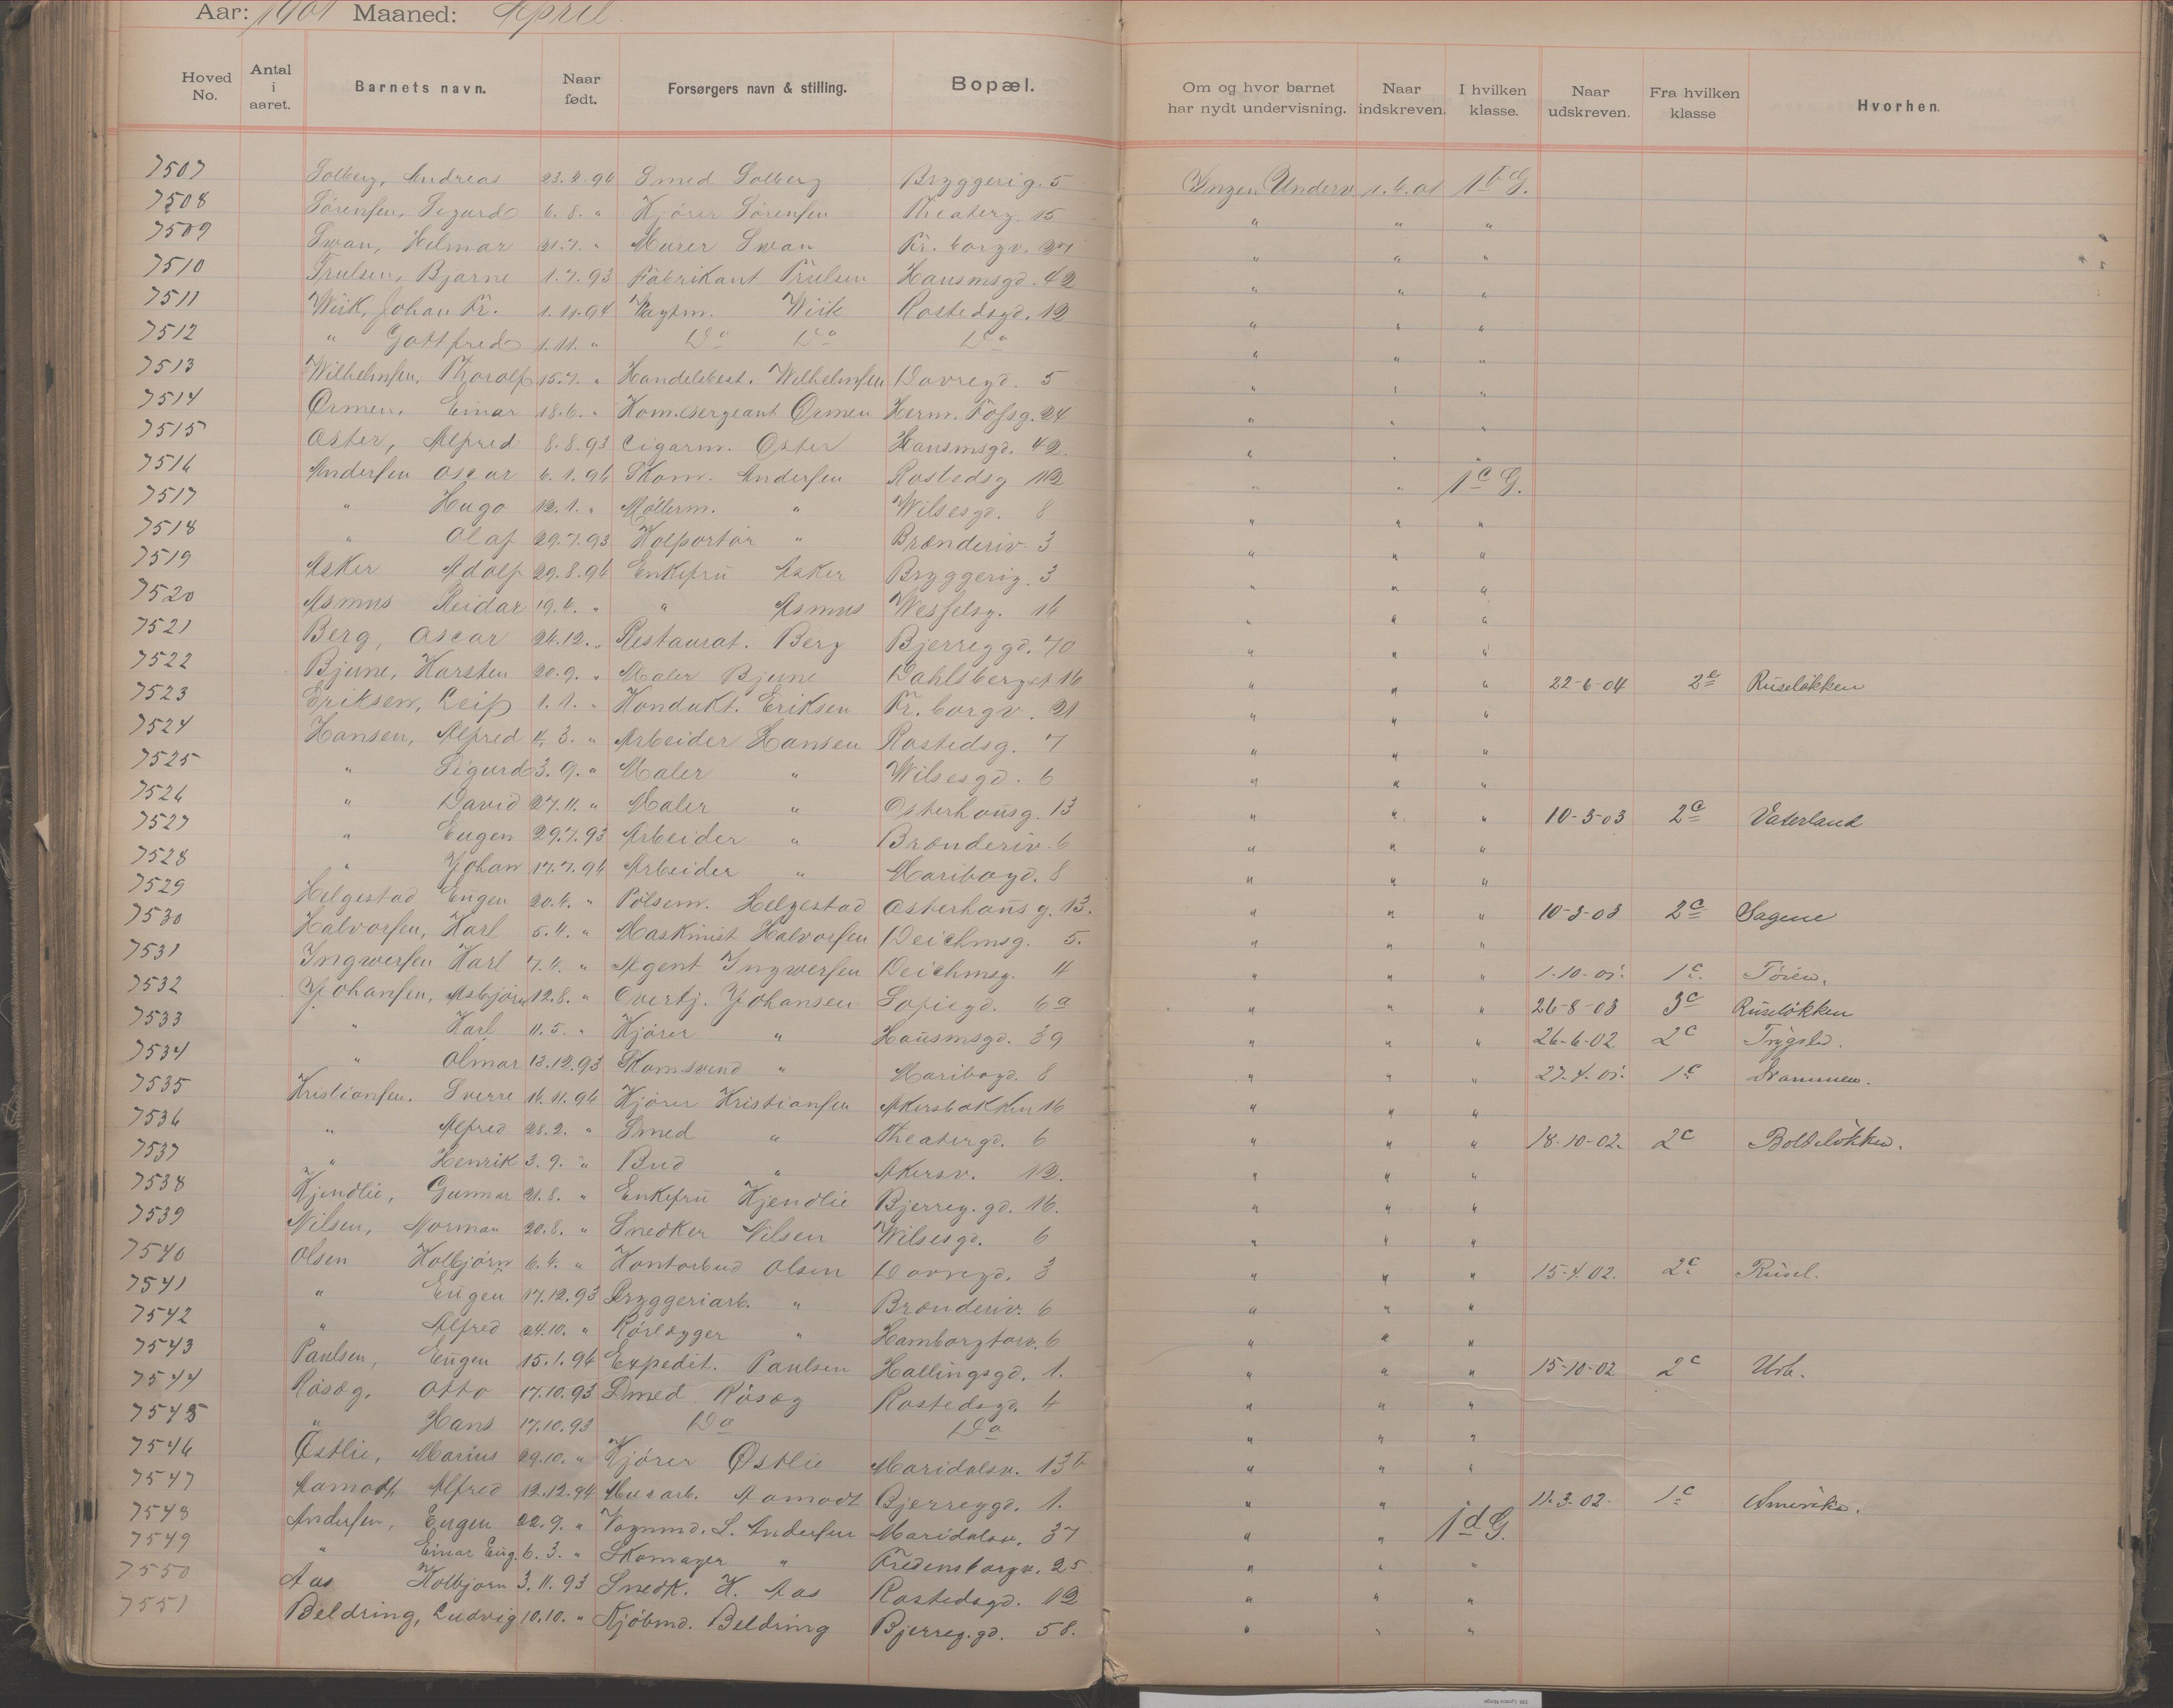 Aar: 1901 Maaned: April
Hoved No. Antal i aaret. Barnets navn. Naar født. Forsørgers navn & stilling. Bopæl. Om og hvor barnet har nydt undervisning. Naar indskreven. I hvilken klasse. Naar udskreven. Fra hvilken klasse Hvorhen.
7507 Solberg, Andreas 23.4.94 Smed Solberg Bryggerig. 5 Ingen Underv. 1.4.01 1b G.
7508 Sørensen, Sigurd 6.8. " Kjører Sørensen Theaterg. 15 " " "
7509 Swan, Hilmar 21.7. " Murer Swan Fr. borgv. 27 " " "
7510 Trulsen, Bjarne 1.7.93 Fabrikant Trulsen Hausmsgd. 42 " " "
7511 Wiik, Johan Fr. 1.11.94 Vagtm. Wiik Rostedsgd. 12 " " "
7512 " Gottfred 1.11. " Do Do Do " " "
7513 Wilhelmsen, Thorolf 15.7. " Handelsbest. Wilhelmsen Dovregd. 5 " " "
7514 Ormen, Einar 18.6. " Kom.sergeant Ormen Herm. Fossg. 24 " " "
7515 Oster, Alfred 8.8.93 Cigarm. Oster Hausmsgd. 42. " " "
7516 Andersen Oscar 6.1.94 Skom. Andersen Rostedsg 12 " " 1c G.
7517 " Hugo 12.1. " Møllerm. " Wilsesgd. 8 " " "
7518 " Olaf 29.7.93 Kolportør " Brænderiv. 3 " " "
7519 Asker Adolf 29.8.94 Enkefru Asker Bryggerig. 3 " " "
7520 Asmus Reidar 19.4. " " Asmus Wesselsg. 14 " " "
7521 Berg, Oscar 24.12. " Restaurat. Berg Bjerreggd. 70 " " "
7522 Bjune, Karsten 20.9. " Maler Bjune Dahlsbergst 16 " " " 22-6-04 2c Ruseløkken
7523 Eriksen, Leif 1.1. " Kondukt. Eriksen Fr. borgv. 21 " " "
7524 Hansen, Alfred 4.3. " Arbeider Hansen Rostedsg. 7 " " "
7525 " Sigurd 3.9. " Maler " Wilsesgd. 6 " " "
7526 " David 27.11. " Maler " Osterhausg. 13 " " " 10-3-03 2c Vaterland
7527 " Eugen 29.7.93 Arbeider " Brænderiv. 6 " " "
7528 " Johan 17.7.94 Arbeider " Maribogd. 8 " " "
7529 Helgestad Eugen 20.4. " Pølsem. Helgestad Osterhausg. 13. " " " 10-3-03 2c Sagene
7530 Halvorsen, Karl 5.4. " Maskinist Halvorsen Deichmsg. 5. " " "
7531 Ingwersen Karl 7.4. " Agent Ingwersen Deichmsg. 4 " " " 1-10-01. 1c. Tøien.
7532 Johansen, Asbjørn 12.8. " Overtj. Johansen Sofiegd. 6a " " " 26-8-03 3c Ruseløkken
7533 " Karl 11.5. " Kjører " Hausmsgd. 39 " " " 26-6-02. 2c Trygstad.
7534 " Olmar 13.12.93 Skomsvend " Maribogd. 8 " " " 27.4.01. 1c Drammen.
7535 Kristiansen. Sverre 14.11.94 Kjører Kristiansen Akersbakken 16 " " "
7536 " Alfred 28.2. " Smed " Theatergd. 6 " " " 18-10-02. 2c Bolteløkken.
7537 " Henrik 3.9. " Bud " Akersv. 12. " " "
7538 Kjendlie, Gunnar 21.8. " Enkefru Kjendlie Bjerreg.gd. 16. " " "
7539 Nilsen, Norman 20.8. " Snedker Nilsen Wilsesgd. 6 " " "
7540 Olsen Kolbjørn 6.4. " Kontorbud Olsen Dovregd. 3 " " " 15-4.02. 2c Rusel.
7541 " Eugen 17.12.93 Bryggeriarb. " Brænderiv. 6 " " "
7542 " Alfred 24.10. " Rørlægger " Hamborgtorv. 6 " " "
7543 Paulsen, Eugen 15.1.94 Expedit. Paulsen Hallingsgd. 1. " " " 15-10-02 2c Urb.
7544 Røsæg, Otto 17.10.93 Smed Røsæg Rostedsgd. 4 " " "
7545 " Hans 17.10.93 Do Do " " "
7546 Østlie, Marius 29.10. " Kjører Østlie Maridalsv. 13b " " "
7547 Aamodt, Alfred 12.12.94 Murarb. Aamodt Bjerreggd. 1. " " 11.3.02. 1c Amerika.
7548 Andersen, Eugen 22.9. " Vognmd. S. Andersen Maridalsv. 37 " " 1d G.
7549 " Einar Eug. 6.3. " Skomager " Fredensborgv. 25 " " "
7550 Aas Kolbjørn 3.11.93 Snedk. K. Aas Rostedsgd. 12 " " "
7551 Beldring, Ludvig 10.10. " Kjøbmd. Beldring Bjerreg.gd. 58. " " "